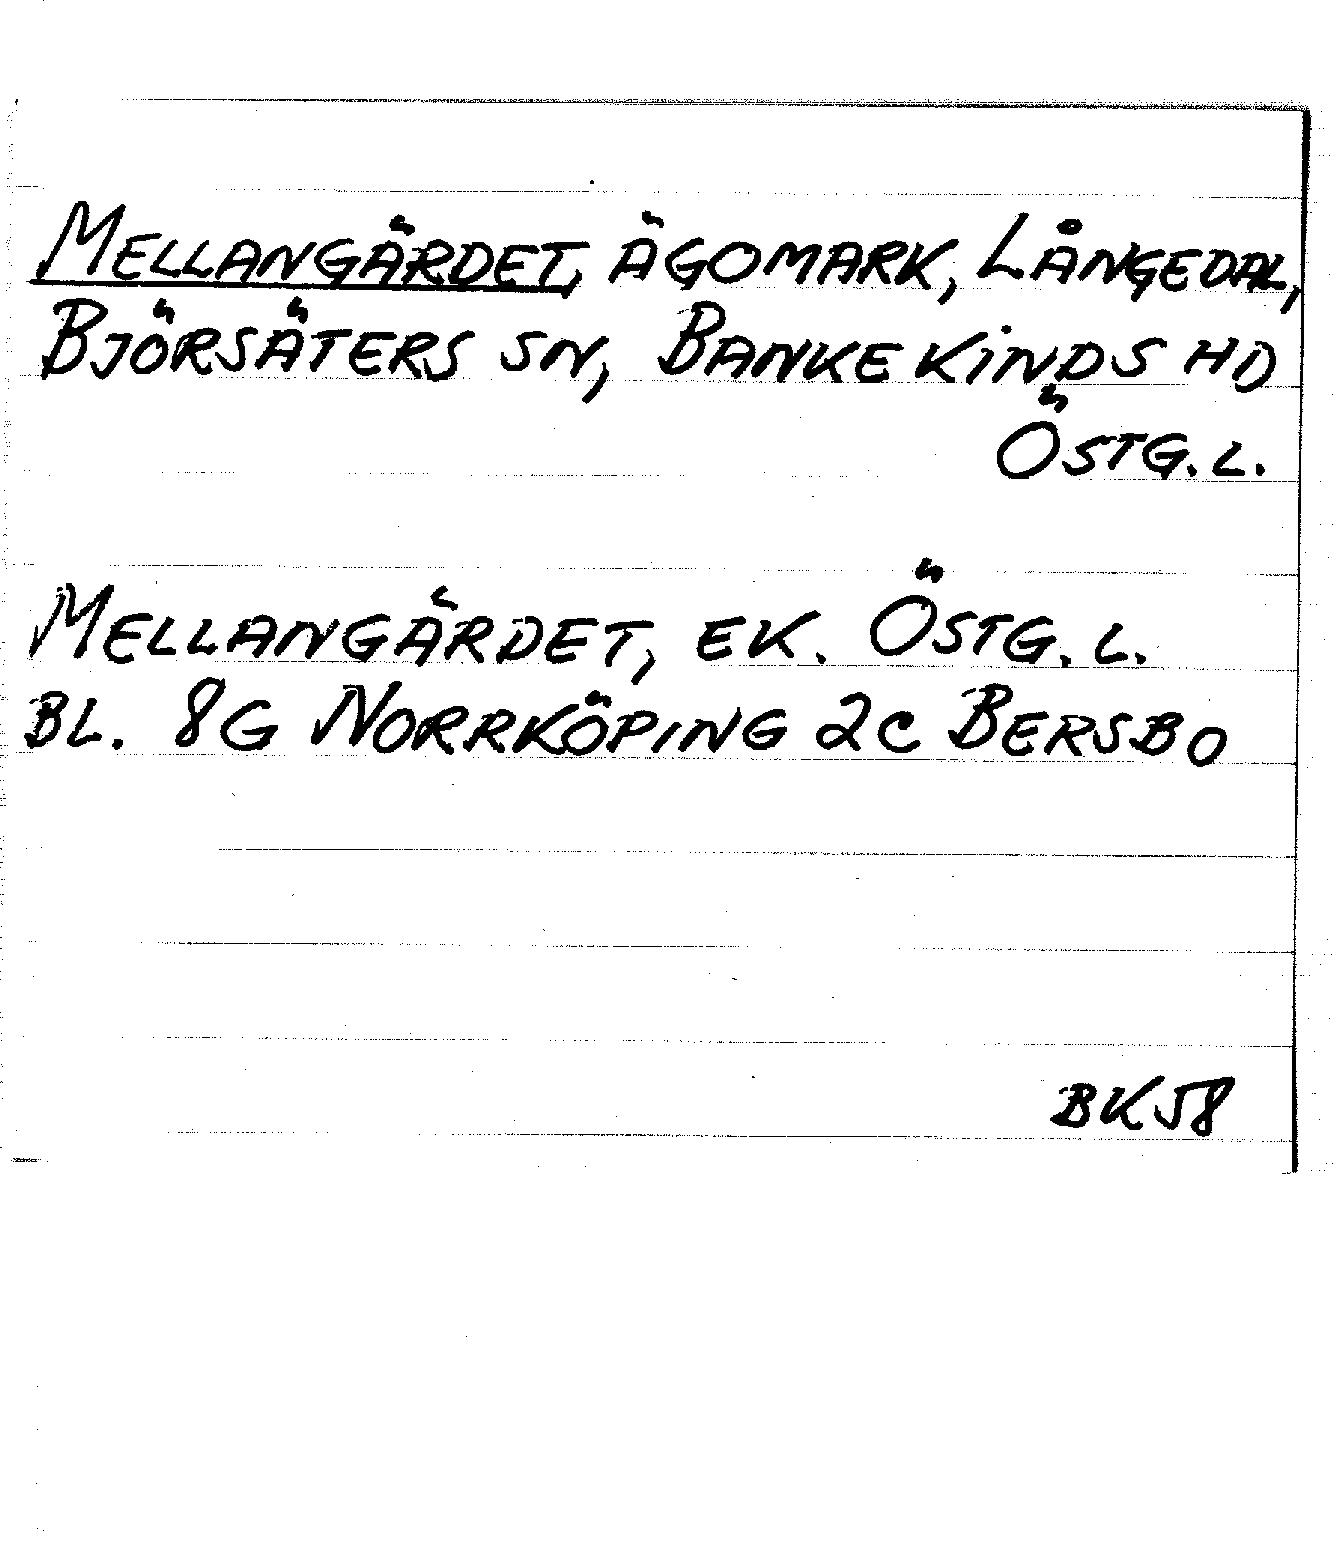 MELLANGÄRDET, ÄGOMARK, LÅNGEDAL,
BJÖRSÄTERS SN, BANKEKINDS HD
ÖSTG.L.
MELLANGÄRDET, EK. ÖSTG.L.
BL. 8G NORRKÖPING 2C BERSBO
BK58